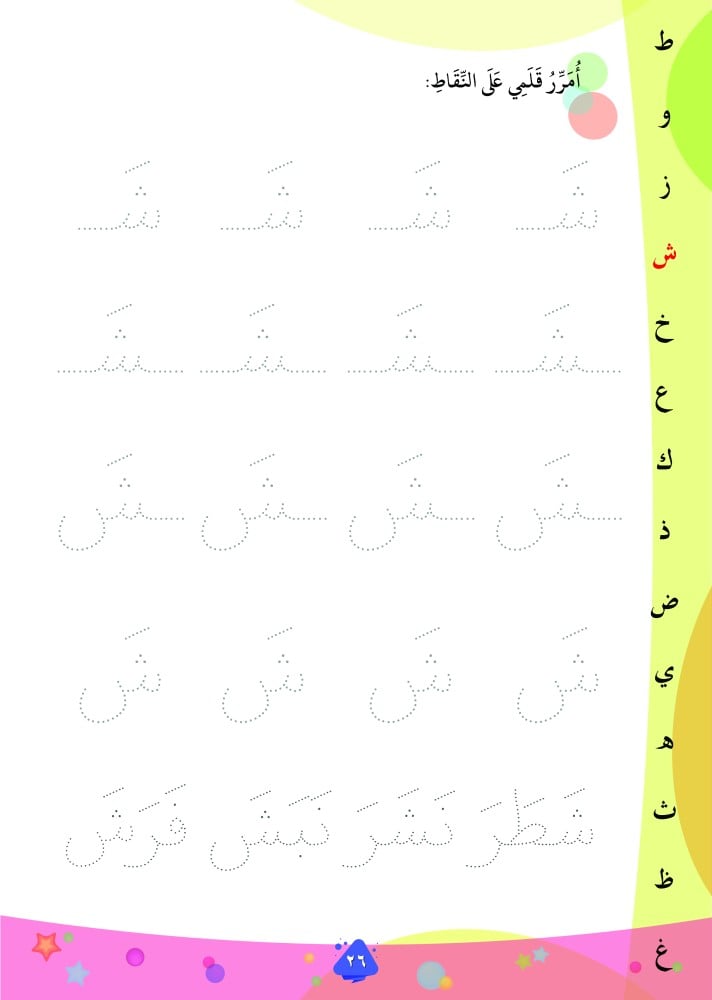 أُمَرِّرُ قَلَمِي عَلَى النِّقَاطِ:
شَـ شَـ شَـ شَـ
ـشَـ ـشَـ ـشَـ ـشَـ
ـشَ ـشَ ـشَ ـشَ
شَ شَ شَ شَ
شَطَرَ نَشَرَ نَبَشَ فَرَشَ
ط
و
ز
ش
خ
ع
ك
ذ
ض
ي
ه
ث
ظ
غ
٢٦